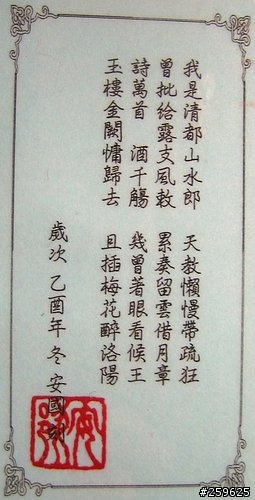 我是清都山水郎 天教懶慢帶疏狂
曾批給露支風敕 累奏留雲借月章
詩萬首 酒千觴 幾曾著眼看候王
玉樓金闕慵歸去 且插梅花醉洛陽
歲次 乙酉年 冬 安國刻
#259625